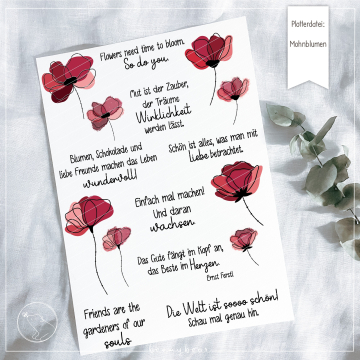 Flowers need time to bloom.
So do you.
Plotterdatei:
Mohnblumen
Mut ist der Zauber,
der Träume
Winklichkeit
werden lässt.
Blumen, Schokolade und
liebe Freunde machen das Leben
wundervoll!
Schön ist alles, was man mit
liebe betrachtet.
Einfach mal machen!
Und daran
wachsen
Das Gute fängt im Kopf an,
das Beste im Herzen.
Ernst Ferstl
Friends are the
gardeners of our
souls
Die Welt ist soooo schön!
Schau mal genau hin.